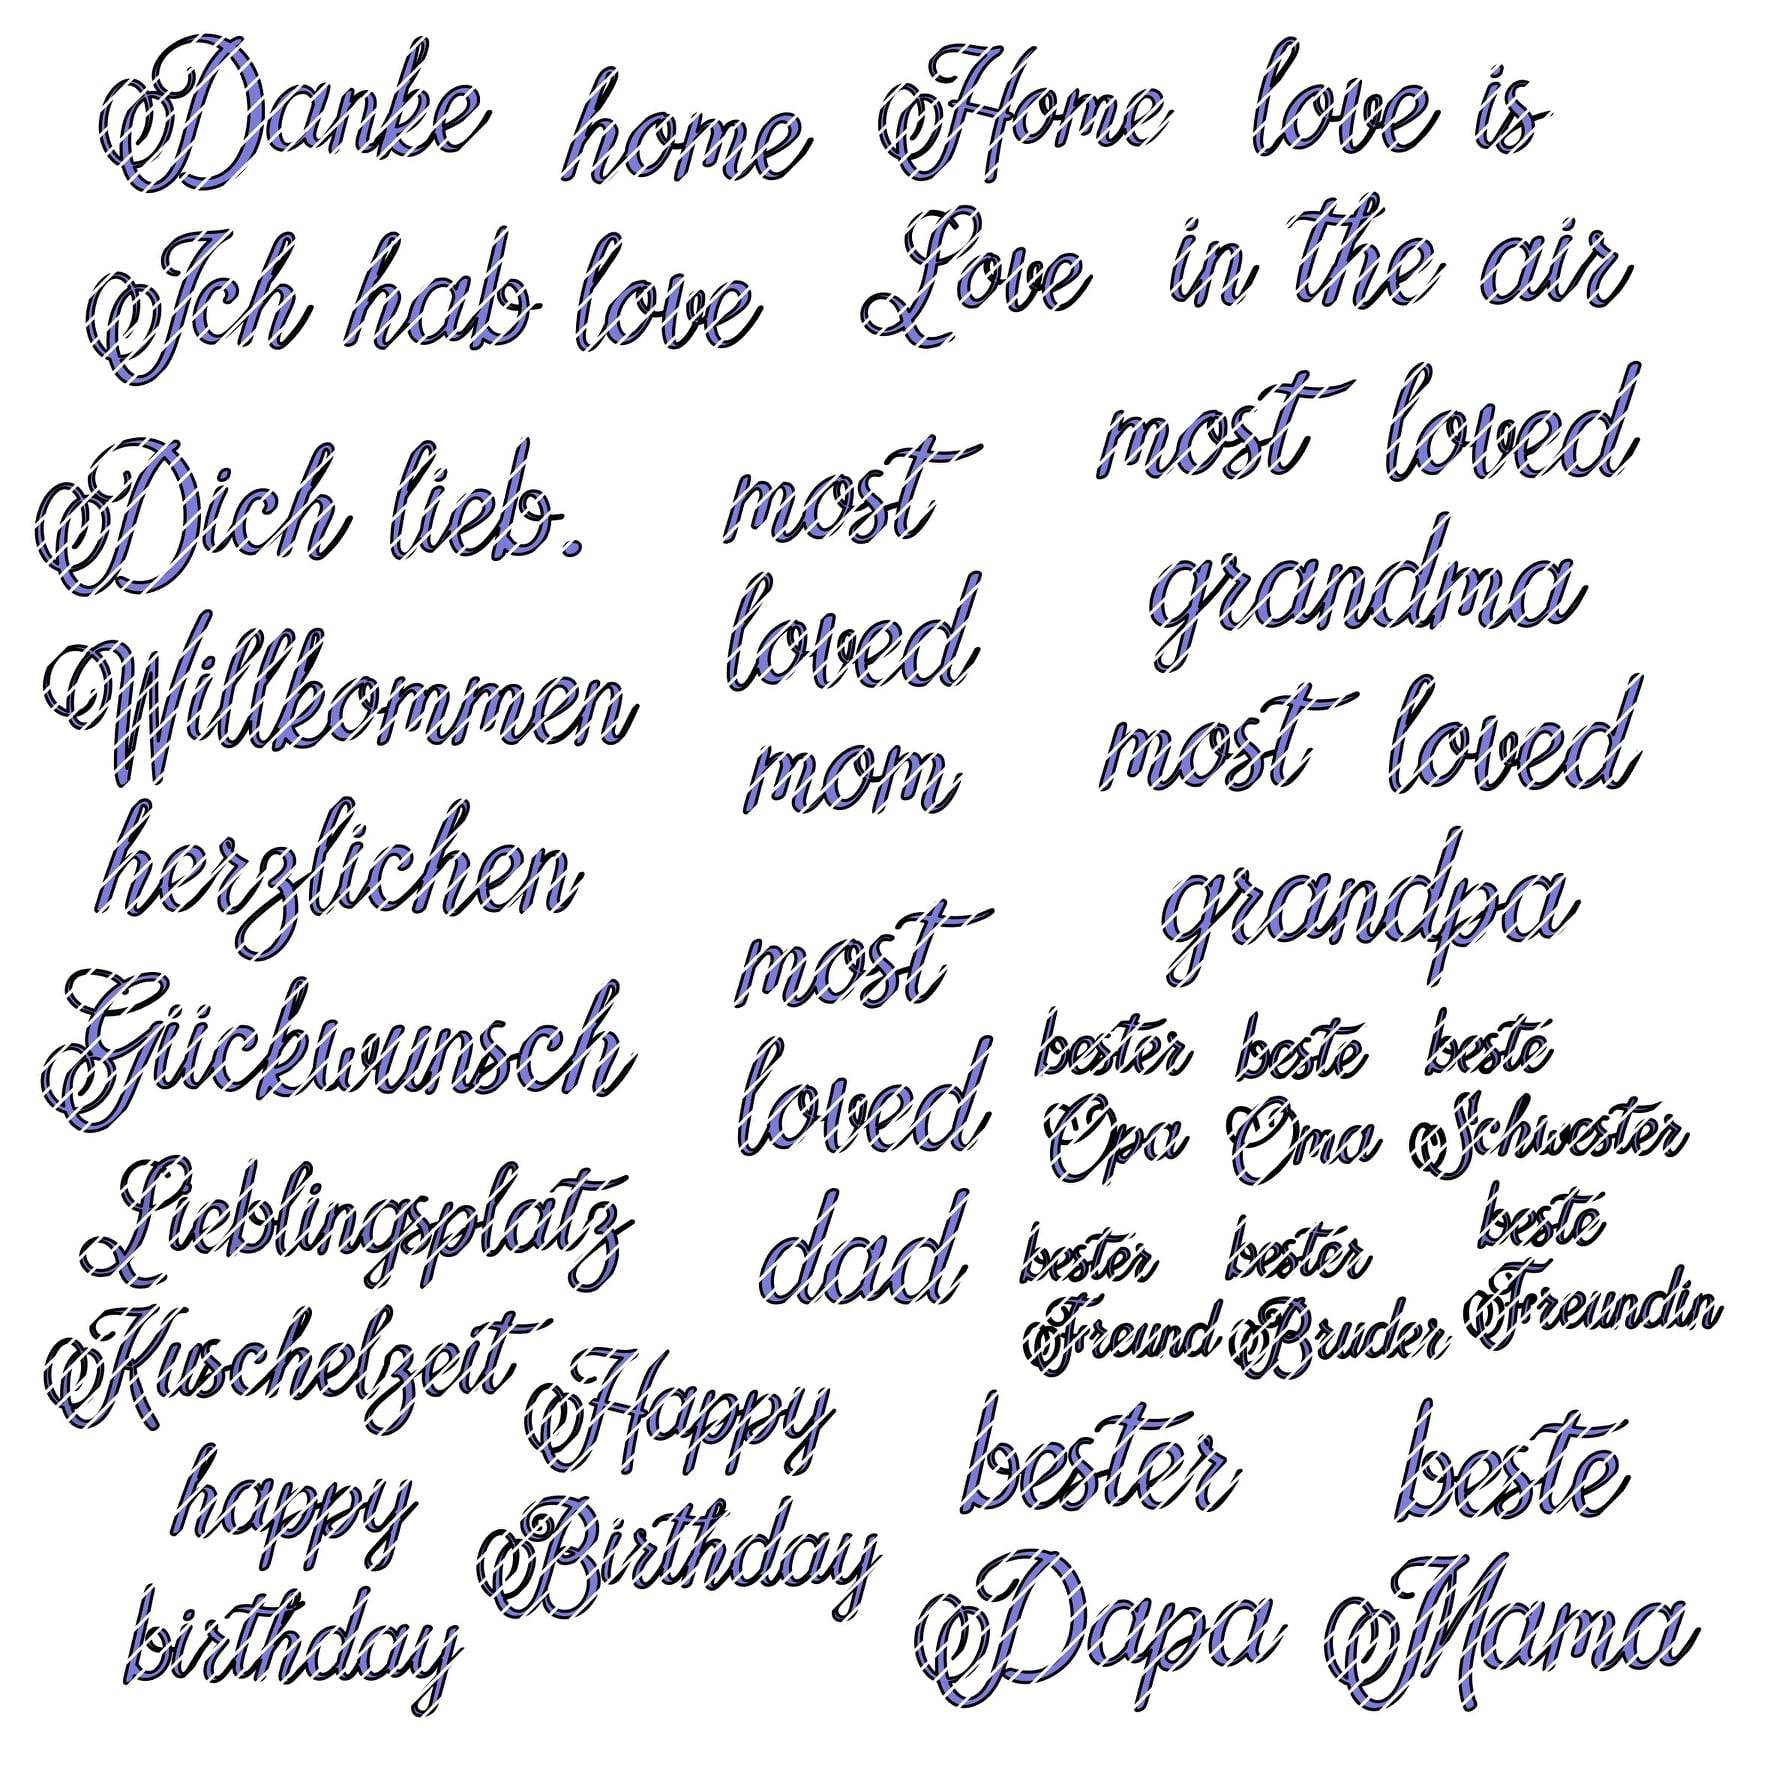 Danke
home
Home
love is
Ich hab love
Love
in the air
Dich lieb.
most
loved
mom
most loved
grandma
Willkommen
most loved
grandpa
herzlichen
Gückwunsch
most
loved
dad
bester
Opa
beste
Oma
beste
Schwester
Lieblingsplatz
bester
Freund
bester
Bruder
beste
Freundin
Kuschelzeit
Happy
Birthday
happy
birthday
bester
Dapa
beste
Mama